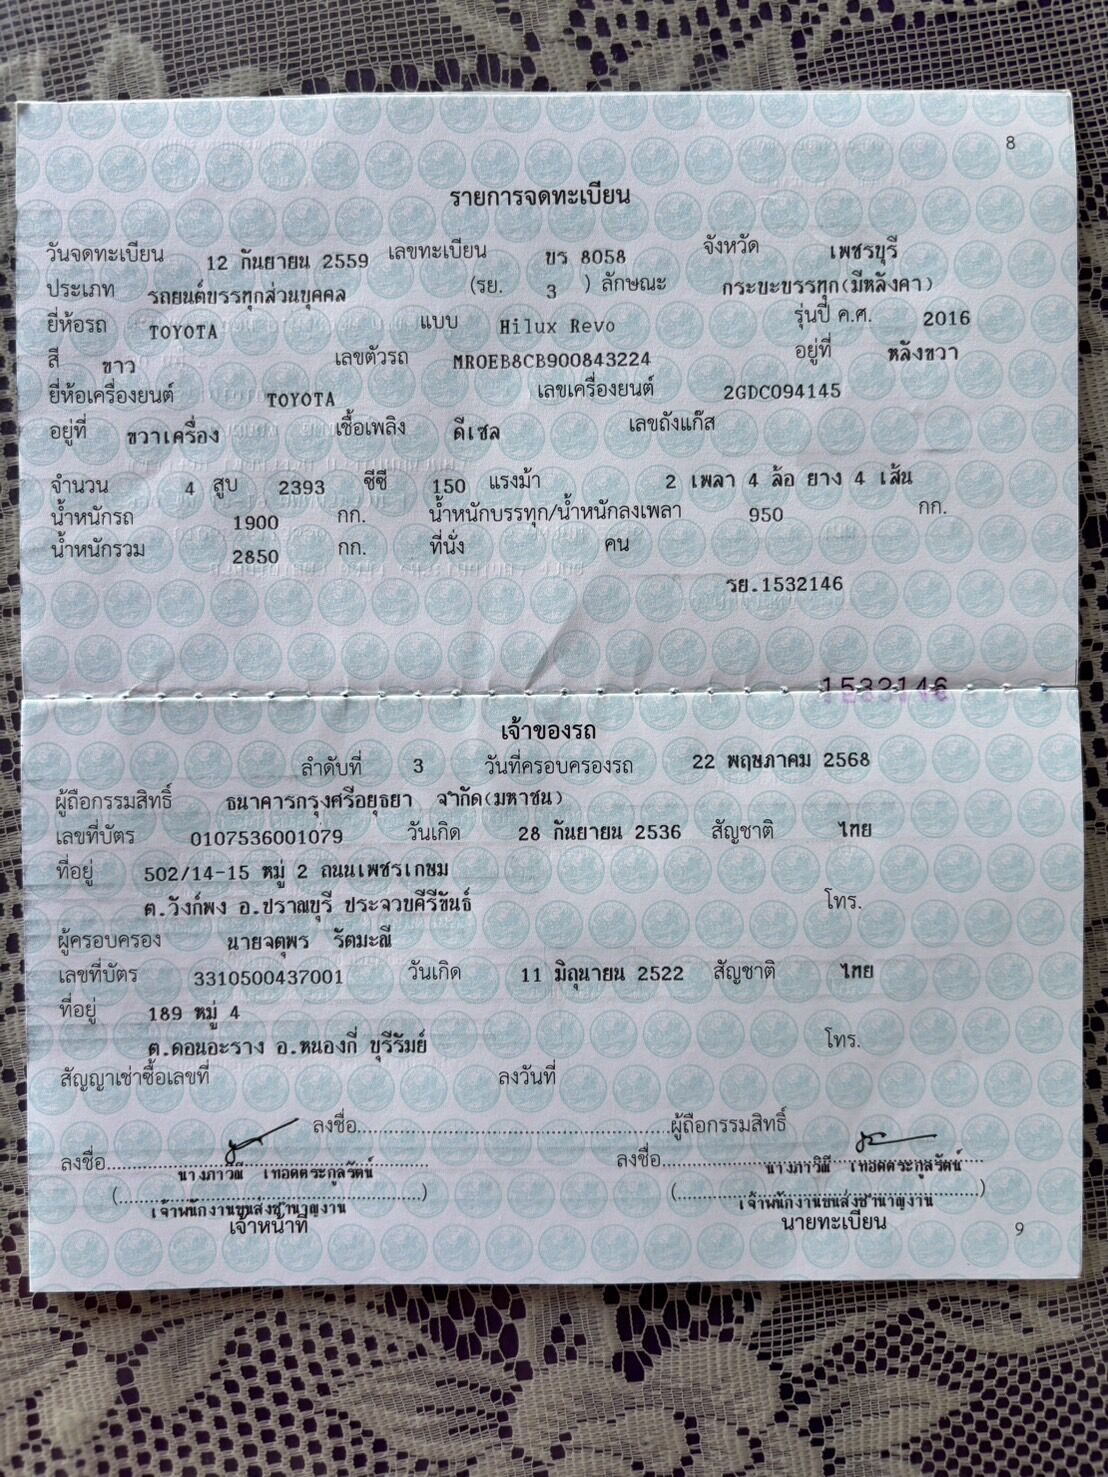 8
รายการจดทะเบียน
วันจดทะเบียน 12 กันยายน 2559 เลขทะเบียน บร 8058 จังหวัด เพชรบุรี
ประเภท รถยนต์บรรทุกส่วนบุคคล (รย. 3 ) ลักษณะ กระบะบรรทุก(มีหลังคา)
ยี่ห้อรถ TOYOTA แบบ Hilux Revo รุ่นปี ค.ศ. 2016
สี ขาว เลขตัวรถ MR0EB8CB900843224 อยู่ที่ หลังขวา
ยี่ห้อเครื่องยนต์ TOYOTA เลขเครื่องยนต์ 2GDC094145
อยู่ที่ ขวาเครื่อง เชื้อเพลิง ดีเซล เลขถังแก๊ส
จำนวน 4 สูบ 2393 ซีซี 150 แรงม้า 2 เพลา 4 ล้อ ยาง 4 เส้น
น้ำหนักรถ 1900 กก. น้ำหนักบรรทุก/น้ำหนักลงเพลา 950 กก.
น้ำหนักรวม 2850 กก. ที่นั่ง คน
รย.1532146
1532146
เจ้าของรถ
ลำดับที่ 3 วันที่ครอบครองรถ 22 พฤษภาคม 2568
ผู้ถือกรรมสิทธิ์ ธนาคารกรุงศรีอยุธยา จำกัด(มหาชน)
เลขที่บัตร 0107536001079 วันเกิด 28 กันยายน 2536 สัญชาติ ไทย
ที่อยู่ 502/14-15 หมู่ 2 ถนนเพชรเกษม
ต.วังก์พง อ.ปราณบุรี ประจวบคีรีขันธ์ โทร.
ผู้ครอบครอง นายจตุพร รัตมะณี
เลขที่บัตร 3310500437001 วันเกิด 11 มิถุนายน 2522 สัญชาติ ไทย
ที่อยู่ 189 หมู่ 4
ต.ดอนอะราง อ.หนองกี่ บุรีรัมย์ โทร.
สัญญาเช่าซื้อเลขที่ ลงวันที่
ลงชื่อ ผู้ถือกรรมสิทธิ์
ลงชื่อ ลงชื่อ
นางภาวิณี เทอดตระกูลรัตน์ นางภาวิณี เทอดตระกูลรัตน์
( ) ( )
เจ้าพนักงานขนส่งชำนาญงาน เจ้าพนักงานขนส่งชำนาญงาน
เจ้าหน้าที่ นายทะเบียน
9